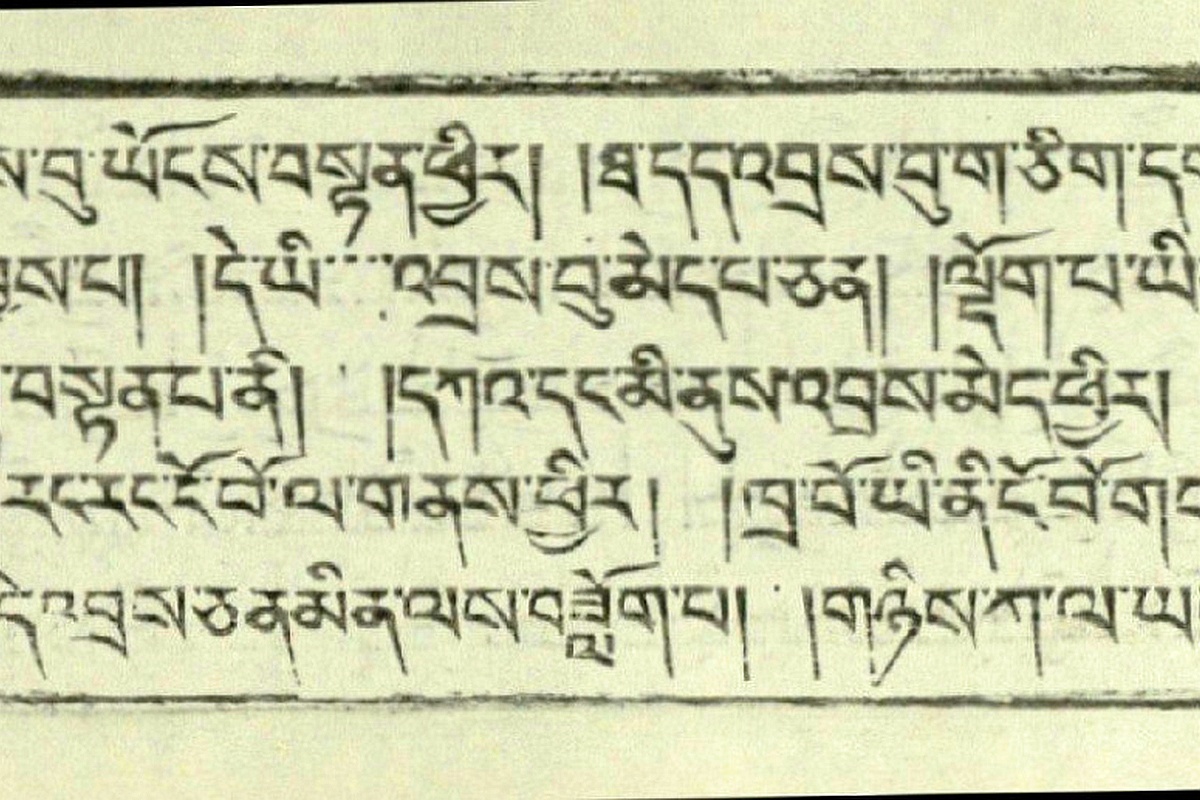 ས་བུ་ཡོངས་བསྟན་ཕྱིར། །ཐ་དད་འབྲས་བུ་གཅིག་ད
ས་པ། །དེ་ཡི་འབྲས་བུ་མེད་པ་ཅན། །ལྡོག་པ་ཡི
བསྟན་པ་ནི། །དཀའ་དང་མི་ནུས་འབྲས་མེད་ཕྱིར།
རང་རང་ངོ་བོ་ལ་གནས་ཕྱིར། །ཁྲ་བོ་ཡི་ནི་ངོ་བོ་ག
དེ་འབྲས་ཅན་མིན་ལས་བཟློག་པ། །གཉིས་ཀ་ལ་ཡ